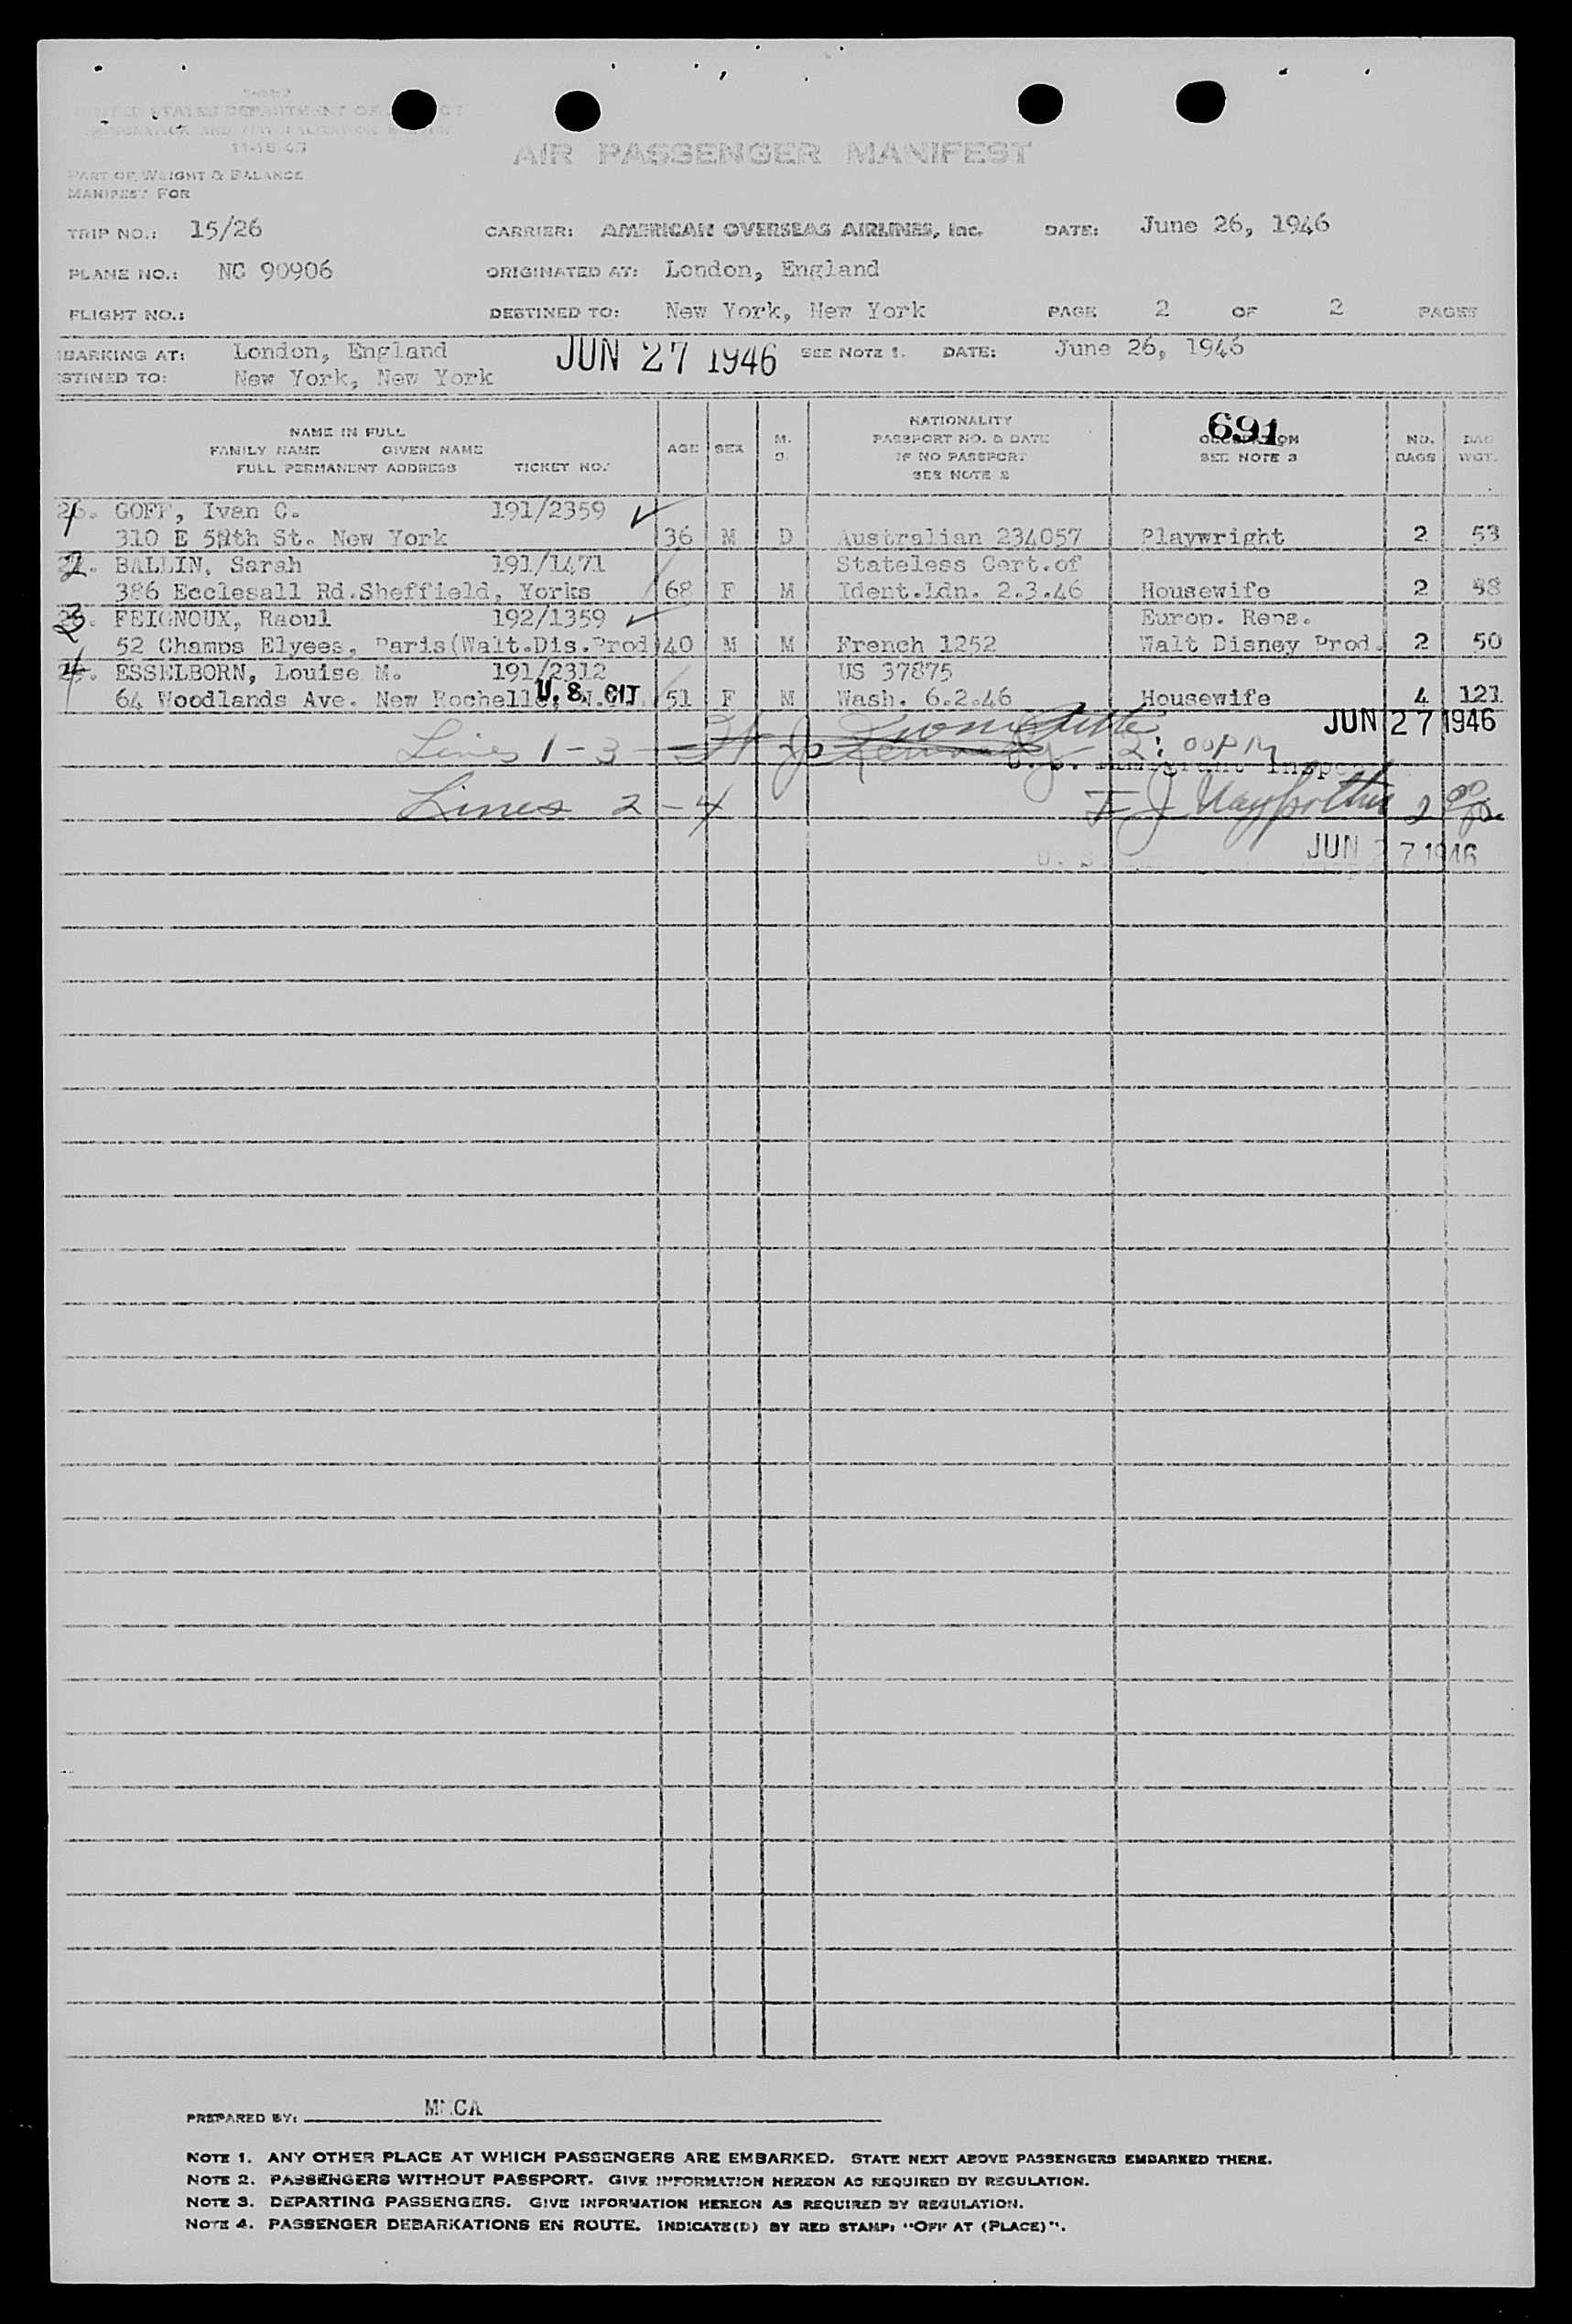 UNITED STATES DEPARTMENT OF JUSTICE
IMMIGRATION AND NATURALIZATION SERVICE
11-15-45
AIR PASSENGER MANIFEST
PART OF WEIGHT & BALANCE
MANIFEST FOR
TRIP NO.: 15/26 CARRIER: AMERICAN OVERSEAS AIRLINES, Inc. DATE: June 26, 1946
PLANE NO.: NC 90906 ORIGINATED AT: London, England
FLIGHT NO.: DESTINED TO: New York, New York PAGE 2 OF 2 PAGES
MBARKING AT: London, England JUN 27 1946 SEE NOTE 1. DATE: June 26, 1946
ESTINED TO: New York, New York
NAME IN FULL
FAMILY NAME GIVEN NAME
FULL PERMANENT ADDRESS TICKET NO.
AGE SEX M. S.
NATIONALITY
PASSPORT NO. & DATE
IF NO PASSPORT
SEE NOTE 2
691
OCCUPATION
SEE NOTE 3
NO. BAGS
BAG WGT.
1 26. GOFF, Ivan C. 191/2359
310 E 58th St. New York 36 M D Australian 234057 Playwright 2 53
2 BALLIN, Sarah 191/1471 Stateless Cert.of
386 Ecclesall Rd.Sheffield, Yorks 68 F M Ident.Ldn. 2.3.46 Housewife 2
3 FEIGNOUX, Raoul 192/1359 Europ. Reps.
52 Champs Elyees, Paris(Walt.Dis.Prod) 40 M M French 1252 Walt Disney Prod. 2 50
4 ESSELBORN, Louise M. 191/2312 US 37875
64 Woodlands Ave. New Rochelle, N.Y. U.S. CIT. 51 F M Wash. 6.2.46 Housewife 4 121
JUN 27 1946
Lines 1 - 3 2:00 PM
U. S. Immigrant Inspector
Lines 2 - 4 F J
JUN 27 1946
PREPARED BY:
NOTE 1. ANY OTHER PLACE AT WHICH PASSENGERS ARE EMBARKED. STATE NEXT ABOVE PASSENGERS EMBARKED THERE.
NOTE 2. PASSENGERS WITHOUT PASSPORT. GIVE INFORMATION HEREON AS REQUIRED BY REGULATION.
NOTE 3. DEPARTING PASSENGERS. GIVE INFORMATION HEREON AS REQUIRED BY REGULATION.
NOTE 4. PASSENGER DEBARKATIONS EN ROUTE. INDICATE(D) BY RED STAMP: "OFF AT (PLACE)".